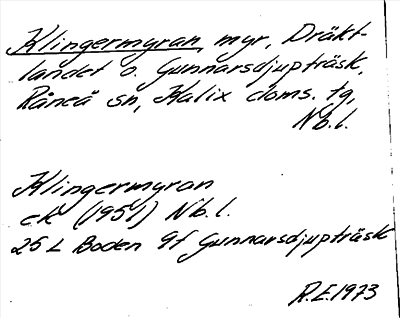 Klingermyran, myr, Dräkt-
landet o. Gunnarsdjupträsk,
Råneå sn, Kalix doms. tg,
Nb.l.
Klingermyran
ek (1951) Nb.l.
25 L Boden 9f Gunnarsdjupträsk
R.E.1973